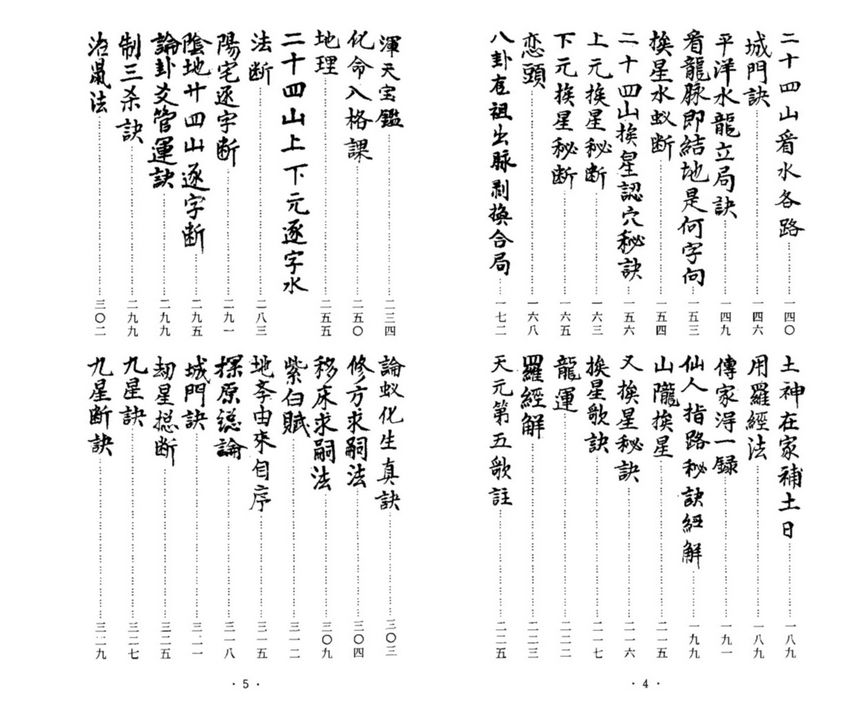 二十四山看水各路……一四〇
城門訣……一四六
平洋水龍立局訣……一四九
看龍脉即結地是何字向……一五三
挨星水蚁断……一五四
二十四山挨星認穴秘訣……一五六
上元挨星秘断……一六三
下元挨星秘断……一六五
恋頭……一六八
八卦在祖出脉剥換合局……一七二
土神在家補土日……一八九
用羅經法……一八九
傳家淂一録……一九一
仙人指路秘訣經解……一九九
山隴挨星……二一五
又挨星秘訣……二一六
挨星歌訣……二一七
龍運……二二二
羅經解……二二三
天元第五歌註……二二五
·4·
渾天宝鑑……二三四
化命入格課……二五〇
地理……二五五
二十四山上下元逐字水
法断……二八三
陽宅逐字断……二九一
陰地廿四山逐字断……二九五
論卦爻管運訣……二九九
制三杀訣……二九九
治鼠法……三〇二
論蚁化生真訣……三〇三
修方求嗣法……三〇四
移床求嗣法……三〇九
紫白賦……三一二
地李由來自序……三一五
探原總論……三一八
城門訣……三二一
劫星捴断……三二五
九星訣……三二七
九星断訣……三二九
·5·